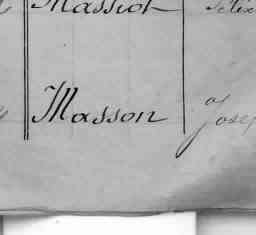 Massiot Félix
Masson Josep